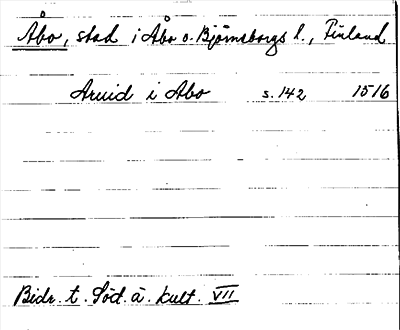 Åbo, stad i Åbo o. Björneborgs l., Finland
Arvid i Abo s. 142 1516
Bidr. t. Söd. ä. kult. VII